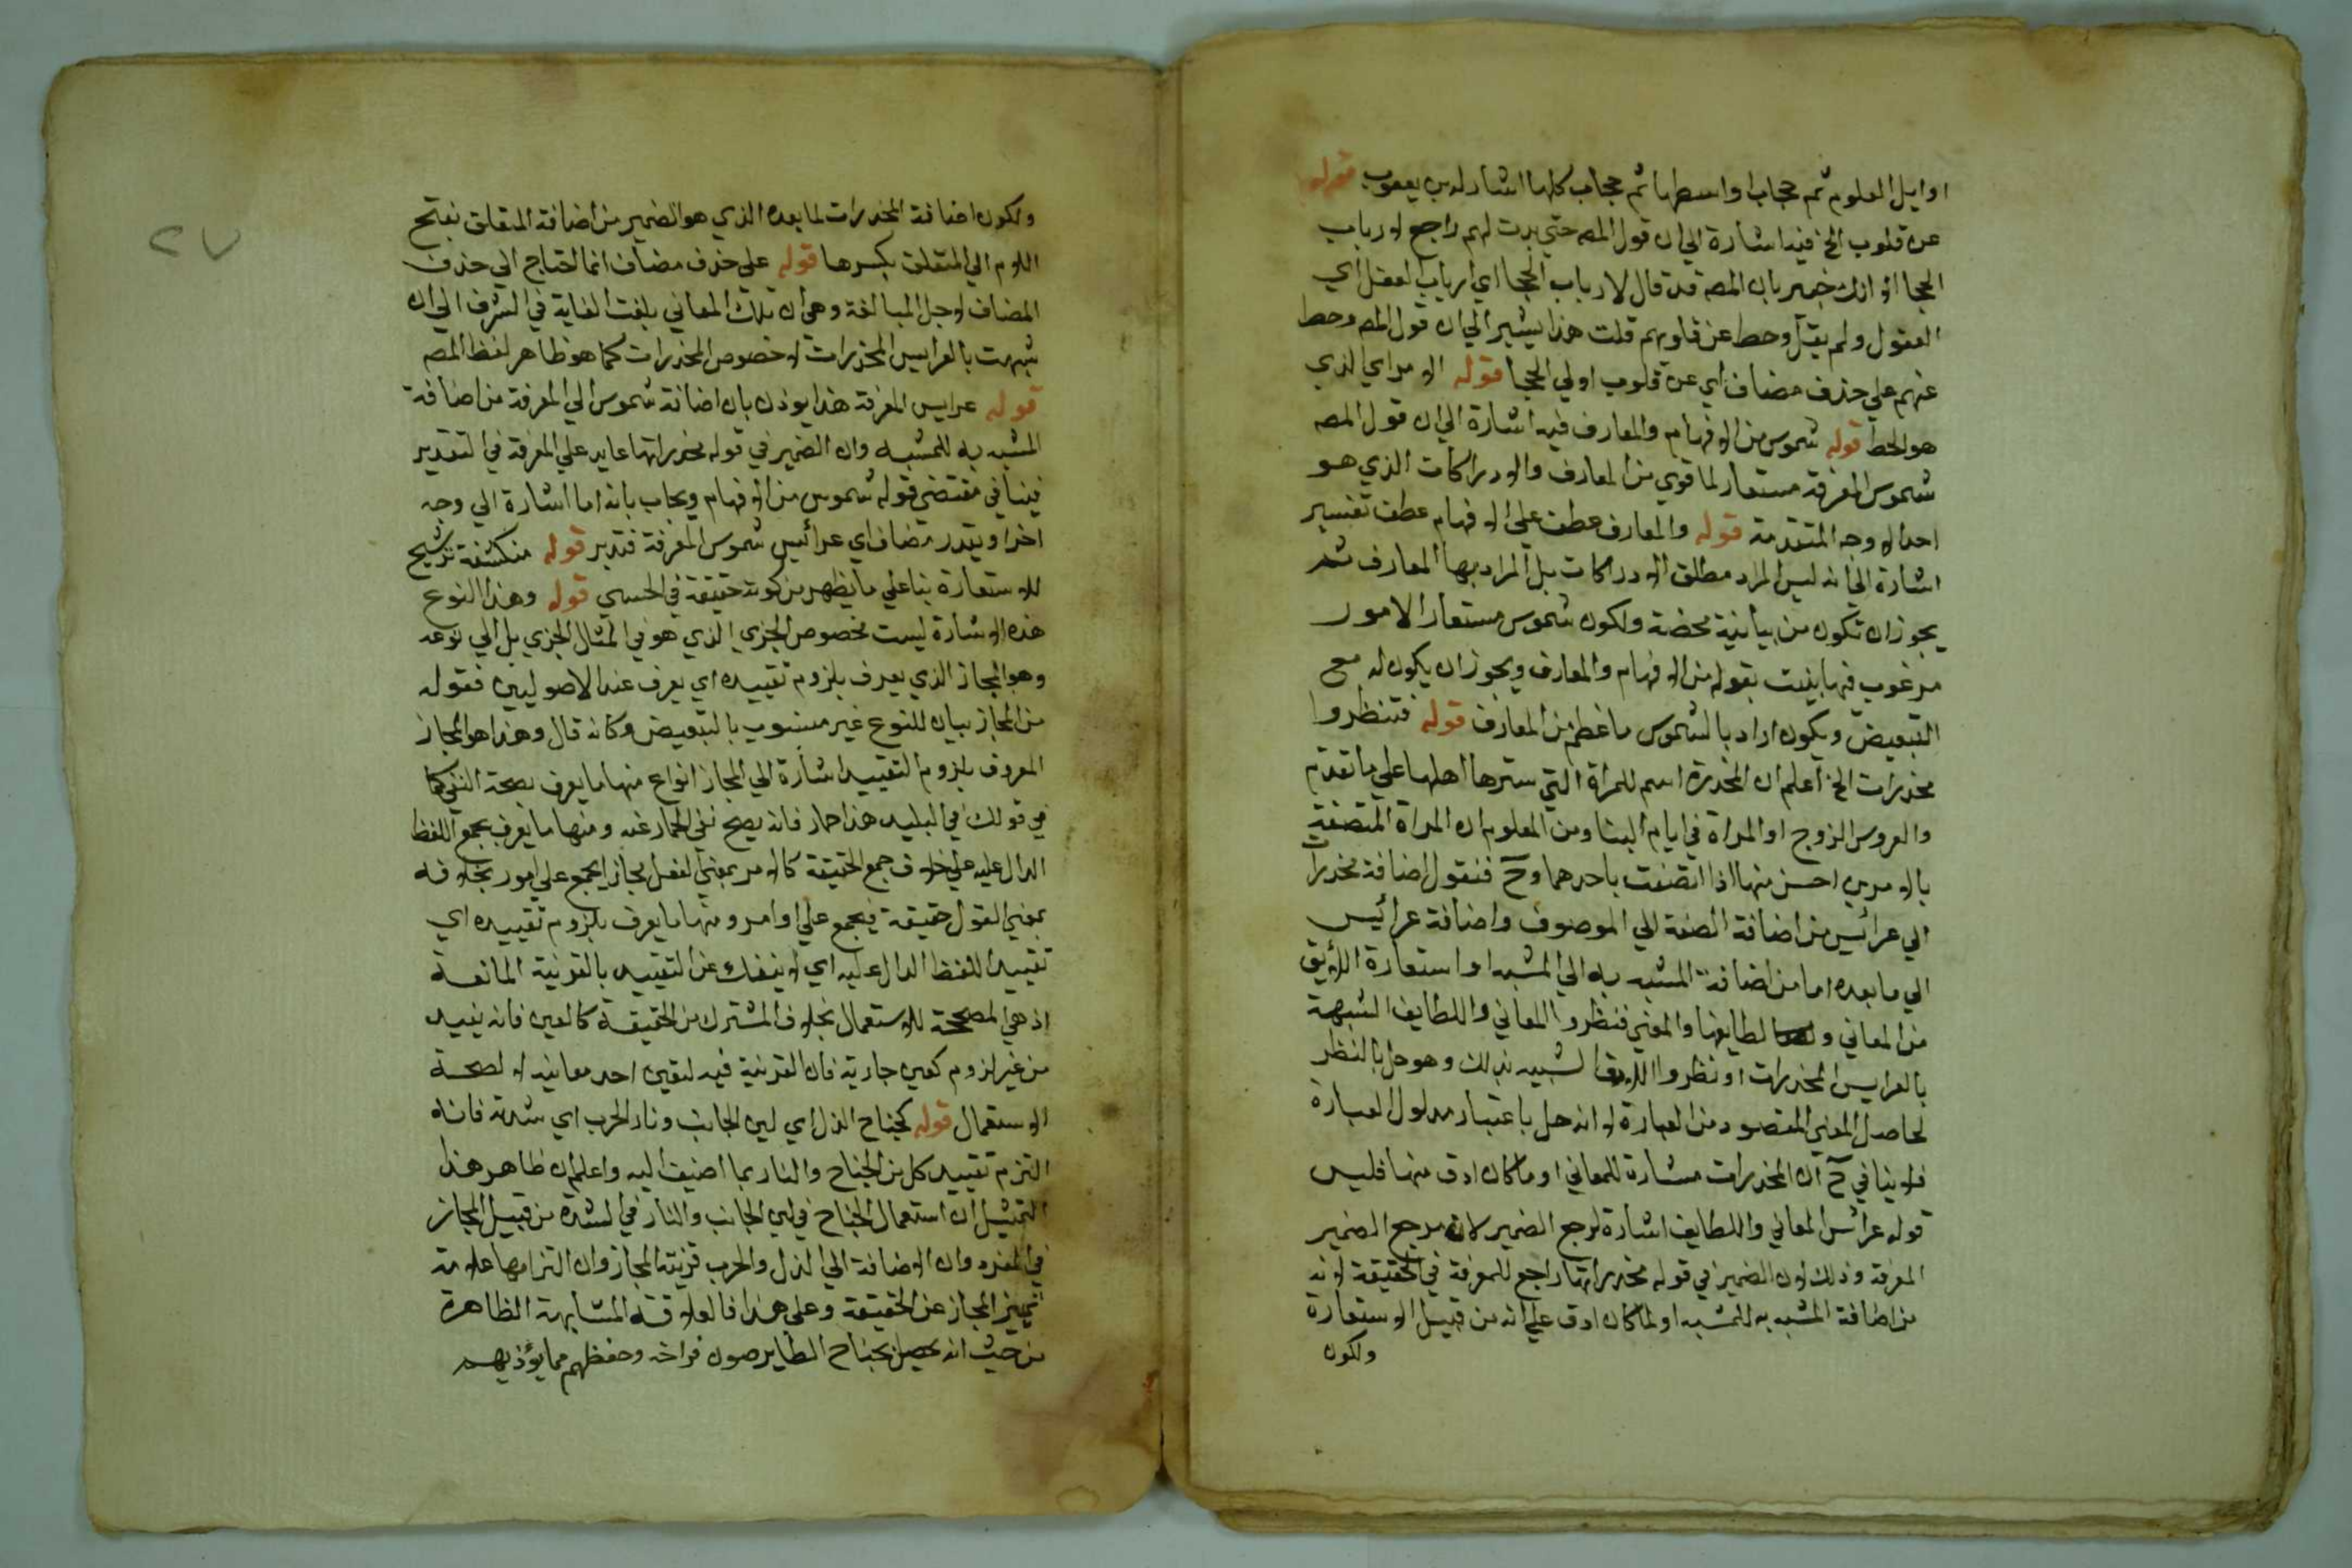 اوايل العلوم ثم حجاب اواسطها ثم حجاب كلها اشار له بن يعقوب قوله
عن قلوب الخ فيه اشارة الي ان قول المصه حتي بدت لهم راجع لارباب
الحجا اذ انك خبير بان المصه قد قال لارباب الحجا اي ارباب العقل اي
العقول ولم يقل وحط عن قلوبهم قلت هذا يشير الي ان قول المصه وحط
عنهم علي حذف مضاف اي عن قلوب اولي الحجا قوله الامر اي الذي
هو الحط قوله شموس من الافهام والمعارف فيه اشارة الي ان قول المصه
شموس المعرفة مستعار لما قوي من المعارف والادراكات الذي هو
احد الاوجه المتقدمة قوله والمعارف عطف علي الافهام عطف تفسير
اشارة الي انه ليس المراد مطلق الادراكات بل المراد بها المعارف ثم
يجوز ان تكون من بيانية محضة ولكون شموس مستعار الامور
مرغوب فيها بينت بقوله من الافهام والمعارف ويجوز ان يكون له مع
التبعيض ويكون اراد بالشموس ما عظم من المعارف قوله فتنظروا
مخدرات الخ اعلم ان المخدرة اسم للمراة التي سترها اهلها علي ما تقدم
والعروس الزوج او المراة في ايام البنا ومن المعلوم ان المراة المتصفة
بالامرين احسن منها اذا اتصفت باحدهما وح فنقول اضافة مخدرات
الي عرائس من اضافة الصفة الي الموصوف واضافة عرائس
الي ما بعده اما من اضافة المشبه به الي المشبه او استعارة اللائق
من المعاني و لطايفها والمعني فنظروا المعاني واللطايف الشبيهة
بالعرايس المخدرات او نظروا الشبيه بذلك وهو حل بالنظر
لحاصل المعني المقصود من العبارة لا انه حل باعتبار مدلول العبارة
فلا ينافي ح ان المخدرات مستارة للمعاني او ما كان ادق منها فليس
قوله عرائس المعاني واللطايف اشارة لرجع الضمير لان مرجع الضمير
المعرفة وذلك لان الضمير في قوله مخدراتها راجع للمعرفة في الحقيقة لانه
من اضافة المشبه به للمشبه او لما كان ادق علي انه من قبيل الاستعارة
ولكون
٢٧
ولكون اضافة المخدرات لما بعده الذي هو الضمير من اضافة المتعلق بفتح
اللام الي المتعلق بكسرها قوله علي حذف مضاف انما احتاج الي حذف
المضاف لاجل المبالغة وهي ان تلك المعاني بلغت الغاية في الشرف الي ان
شبهت بالعرايس المخدرات لا خصوص المخدرات كما هو ظاهر لفظ المصه
قوله عرايس المعرفة هذا يوذن بان اضافة شموس الي المعرفة من اضافة
المشبه به للمشبه وان الضمير في قوله مخدراتها عايد علي المعرفة في التقدير
فينافي مقتضي قوله شموس من الافهام ويجاب بانه اما اشارة الي وجه
اخر او يقدر مضاف اي عرائس شموس المعرفة فتدبر قوله منكشفة ترشيح
للاستعارة بنا علي ما يظهر من كونه حقيقة في الحسي قوله وهذا النوع
هذه الاشارة ليست لخصوص الجزي الذي هو في المثال الجزي بل الي نوعه
وهو المجاز الذي يعرف بلزوم تقييده اي يعرف عند الاصوليين فقوله
من المجاز بيان للنوع غير مشوب بالتبعيض وكانه قال وهذا هو المجاز
المعروف بلزوم التقييد اشارة الي المجاز انواع منها ما يعرف بصحة النفي كما
في قولك في البليد هذا حمار فانه يصح نفي الحمار عنه ومنها ما يعرف بجمع اللفظ
الدال عليه علي خلاف جمع الحقيقة كالامر بمعني الفعل مجازا يجمع علي امور بخلافه
بمعني القول حقيقة فيجمع علي اوامر ومنها ما يعرف بلزوم تقييده اي
تقييد اللفظ الدال عليه اي لا ينفك عن التقييد بالقرنية المانعة
اذ هي المصححة للاستعمال بخلاف المشترك من الحقيقة كالعين فانه يقيد
من غير لزوم كعين جارية فان القرنية فيه لتعين احد معانيه لا لصحة
الاستعمال قوله كجناح الذل اي لين الجانب ونار الحرب اي شدته فانه
التزم تقييد كل من الجناح والنار بما اضيف اليه واعلم ان ظاهر هذا
التمثيل ان استعمال الجناح في لين الجانب والنار في الشدة من قبيل المجاز
في المفرد وان الاضافة الي الذل والحرب قرينة المجاز وان التزامها علامة
تمييز المجاز عن الحقيقة وعلي هذا فالعلاقة المشابهة الظاهرة
من حيث انه يحصل بجناح الطاير صون فراخه وحفظهم مما يؤذيهم